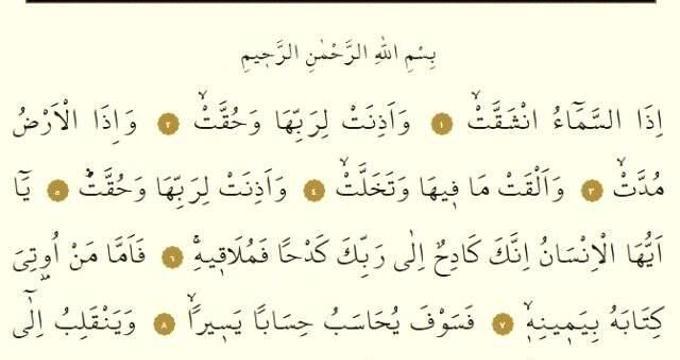 بِسْمِ اللهِ الرَّحْمٰنِ الرَّحِيمِ
اِذَا السَّمَٓاءُ انْشَقَّتْۙ ١ وَاَذِنَتْ لِرَبِّهَا وَحُقَّتْۙ ٢ وَاِذَا الْاَرْضُ
مُدَّتْۙ ٣ وَاَلْقَتْ مَا ف۪يهَا وَتَخَلَّتْۙ ٤ وَاَذِنَتْ لِرَبِّهَا وَحُقَّتْۜ ٥ يَٓا
اَيُّهَا الْاِنْسَانُ اِنَّكَ كَادِحٌ اِلٰى رَبِّكَ كَدْحًا فَمُلَاق۪يهِۚ ٦ فَاَمَّا مَنْ اُو۫تِيَ
كِتَابَهُ بِيَم۪ينِه۪ۙ ٧ فَسَوْفَ يُحَاسَبُ حِسَابًا يَس۪يرًاۙ ٨ وَيَنْقَلِبُ اِلٰٓى